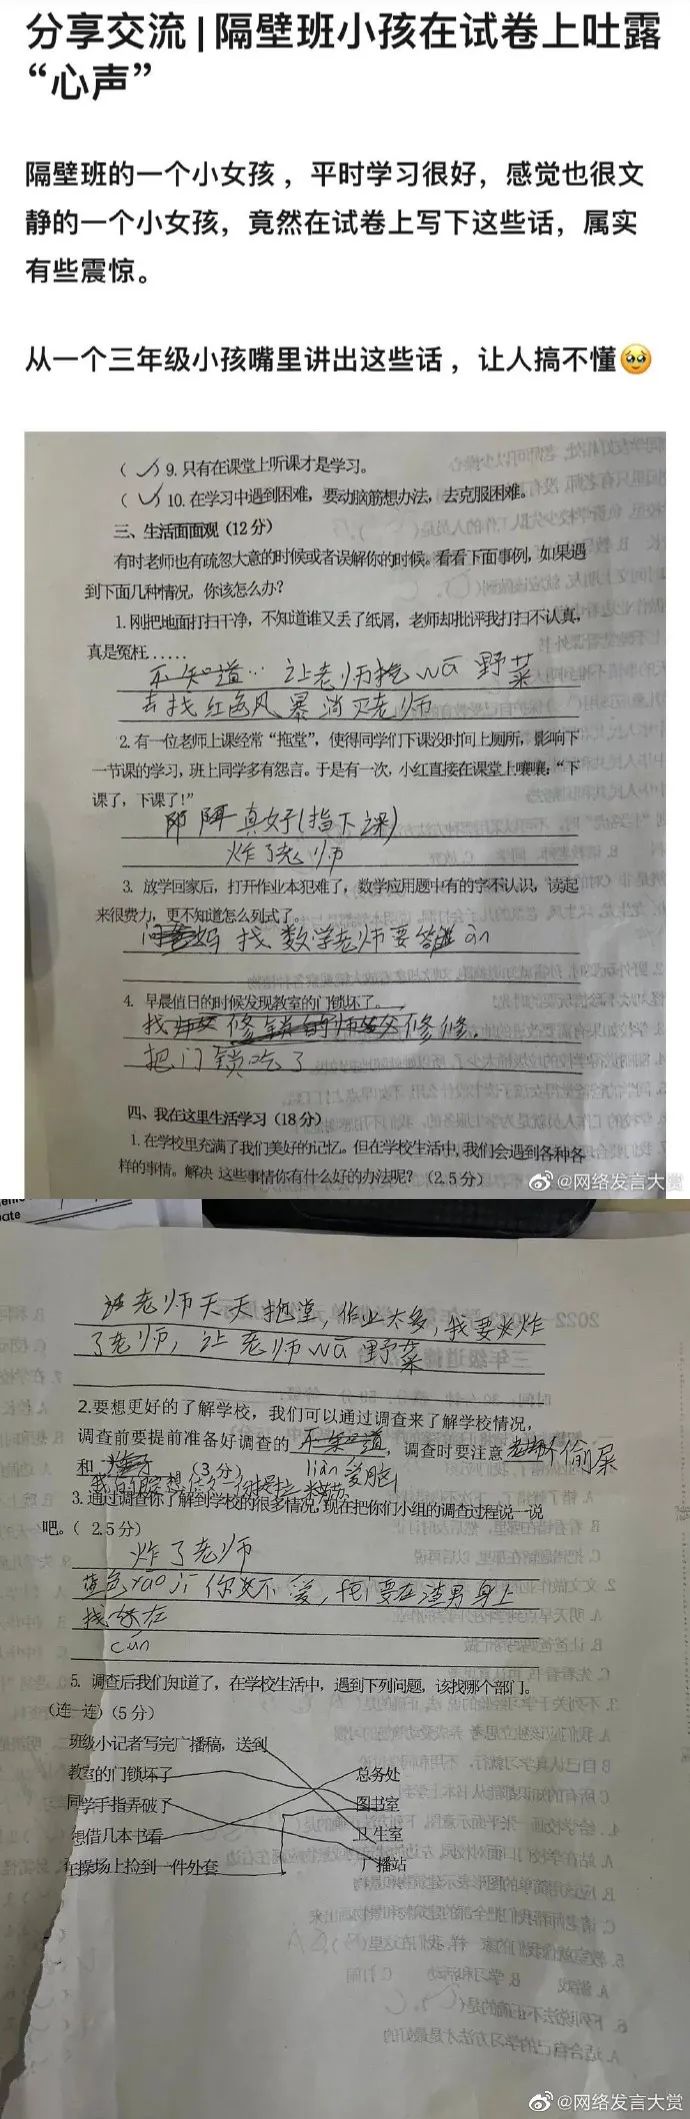 分享交流|隔壁班小孩在试卷上吐露
“心声”
隔壁班的一个小女孩，平时学习很好，感觉也很文
静的一个小女孩，竟然在试卷上写下这些话，属实
有些震惊。
从一个三年级小孩嘴里讲出这些话，让人搞不懂🥹
(✓) 9.只有在课堂上听课才是学习。
(✓) 10.在学习中遇到困难，要动脑筋想办法，去克服困难。
三、生活面面观(12分)
有时老师也有疏忽大意的时候或者误解你的时候。看看下面事例，如果遇
到下面几种情况，你该怎么办？
1.刚把地面打扫干净，不知道谁又丢了纸屑，老师却批评我打扫不认真，
真是冤枉......
不知道… 让老师挖wā野菜
去找红色风暴消灭老师
2.有一位老师上课经常“拖堂”，使得同学们下课没时间上厕所，影响下
一节课的学习，班上同学多有怨言。于是有一次，小红直接在课堂上嚷嚷：“下
课了，下课了！”
真好(指下课)
炸了老师
3. 放学回家后，打开作业本犯难了，数学应用题中有的字不认识，读起
来很费力，更不知道怎么列式了。
问爸妈 找数学老师要答àn
4. 早晨值日的时候发现教室的门锁坏了。
找 修锁的师父修修.
把门锁吃了
四、我在这里生活学习(18分)
1.在学校里充满了我们美好的记忆。但在学校生活中，我们会遇到各种各
样的事情。解决 这些事情你有什么好的办法呢？(2.5分)
@网络发言大赏
老师天天拖堂，作业太多，我要炸
了老师，让老师wā野菜
2.要想更好的了解学校，我们可以通过调查来了解学校情况，
调查前要提前准备好调查的 不知道，调查时要注意 偷屎
和 (3分) liàn爱脑
3.通过调查你了解到学校的很多情况，现在把你们小组的调查过程说一说
吧。(2.5分)
炸了老师
黄色yāo 你 不爱，fēi要在渣男身上
找 在
cún
5. 调查后我们知道了，在学校生活中，遇到下列问题，该找哪个部门。
(连一连)(5分)
班级小记者写完广播稿，送到
教室的门锁坏了 总务处
同学手指弄破了 图书室
想借几本书看 卫生室
在操场上捡到一件外套 广播站
@网络发言大赏